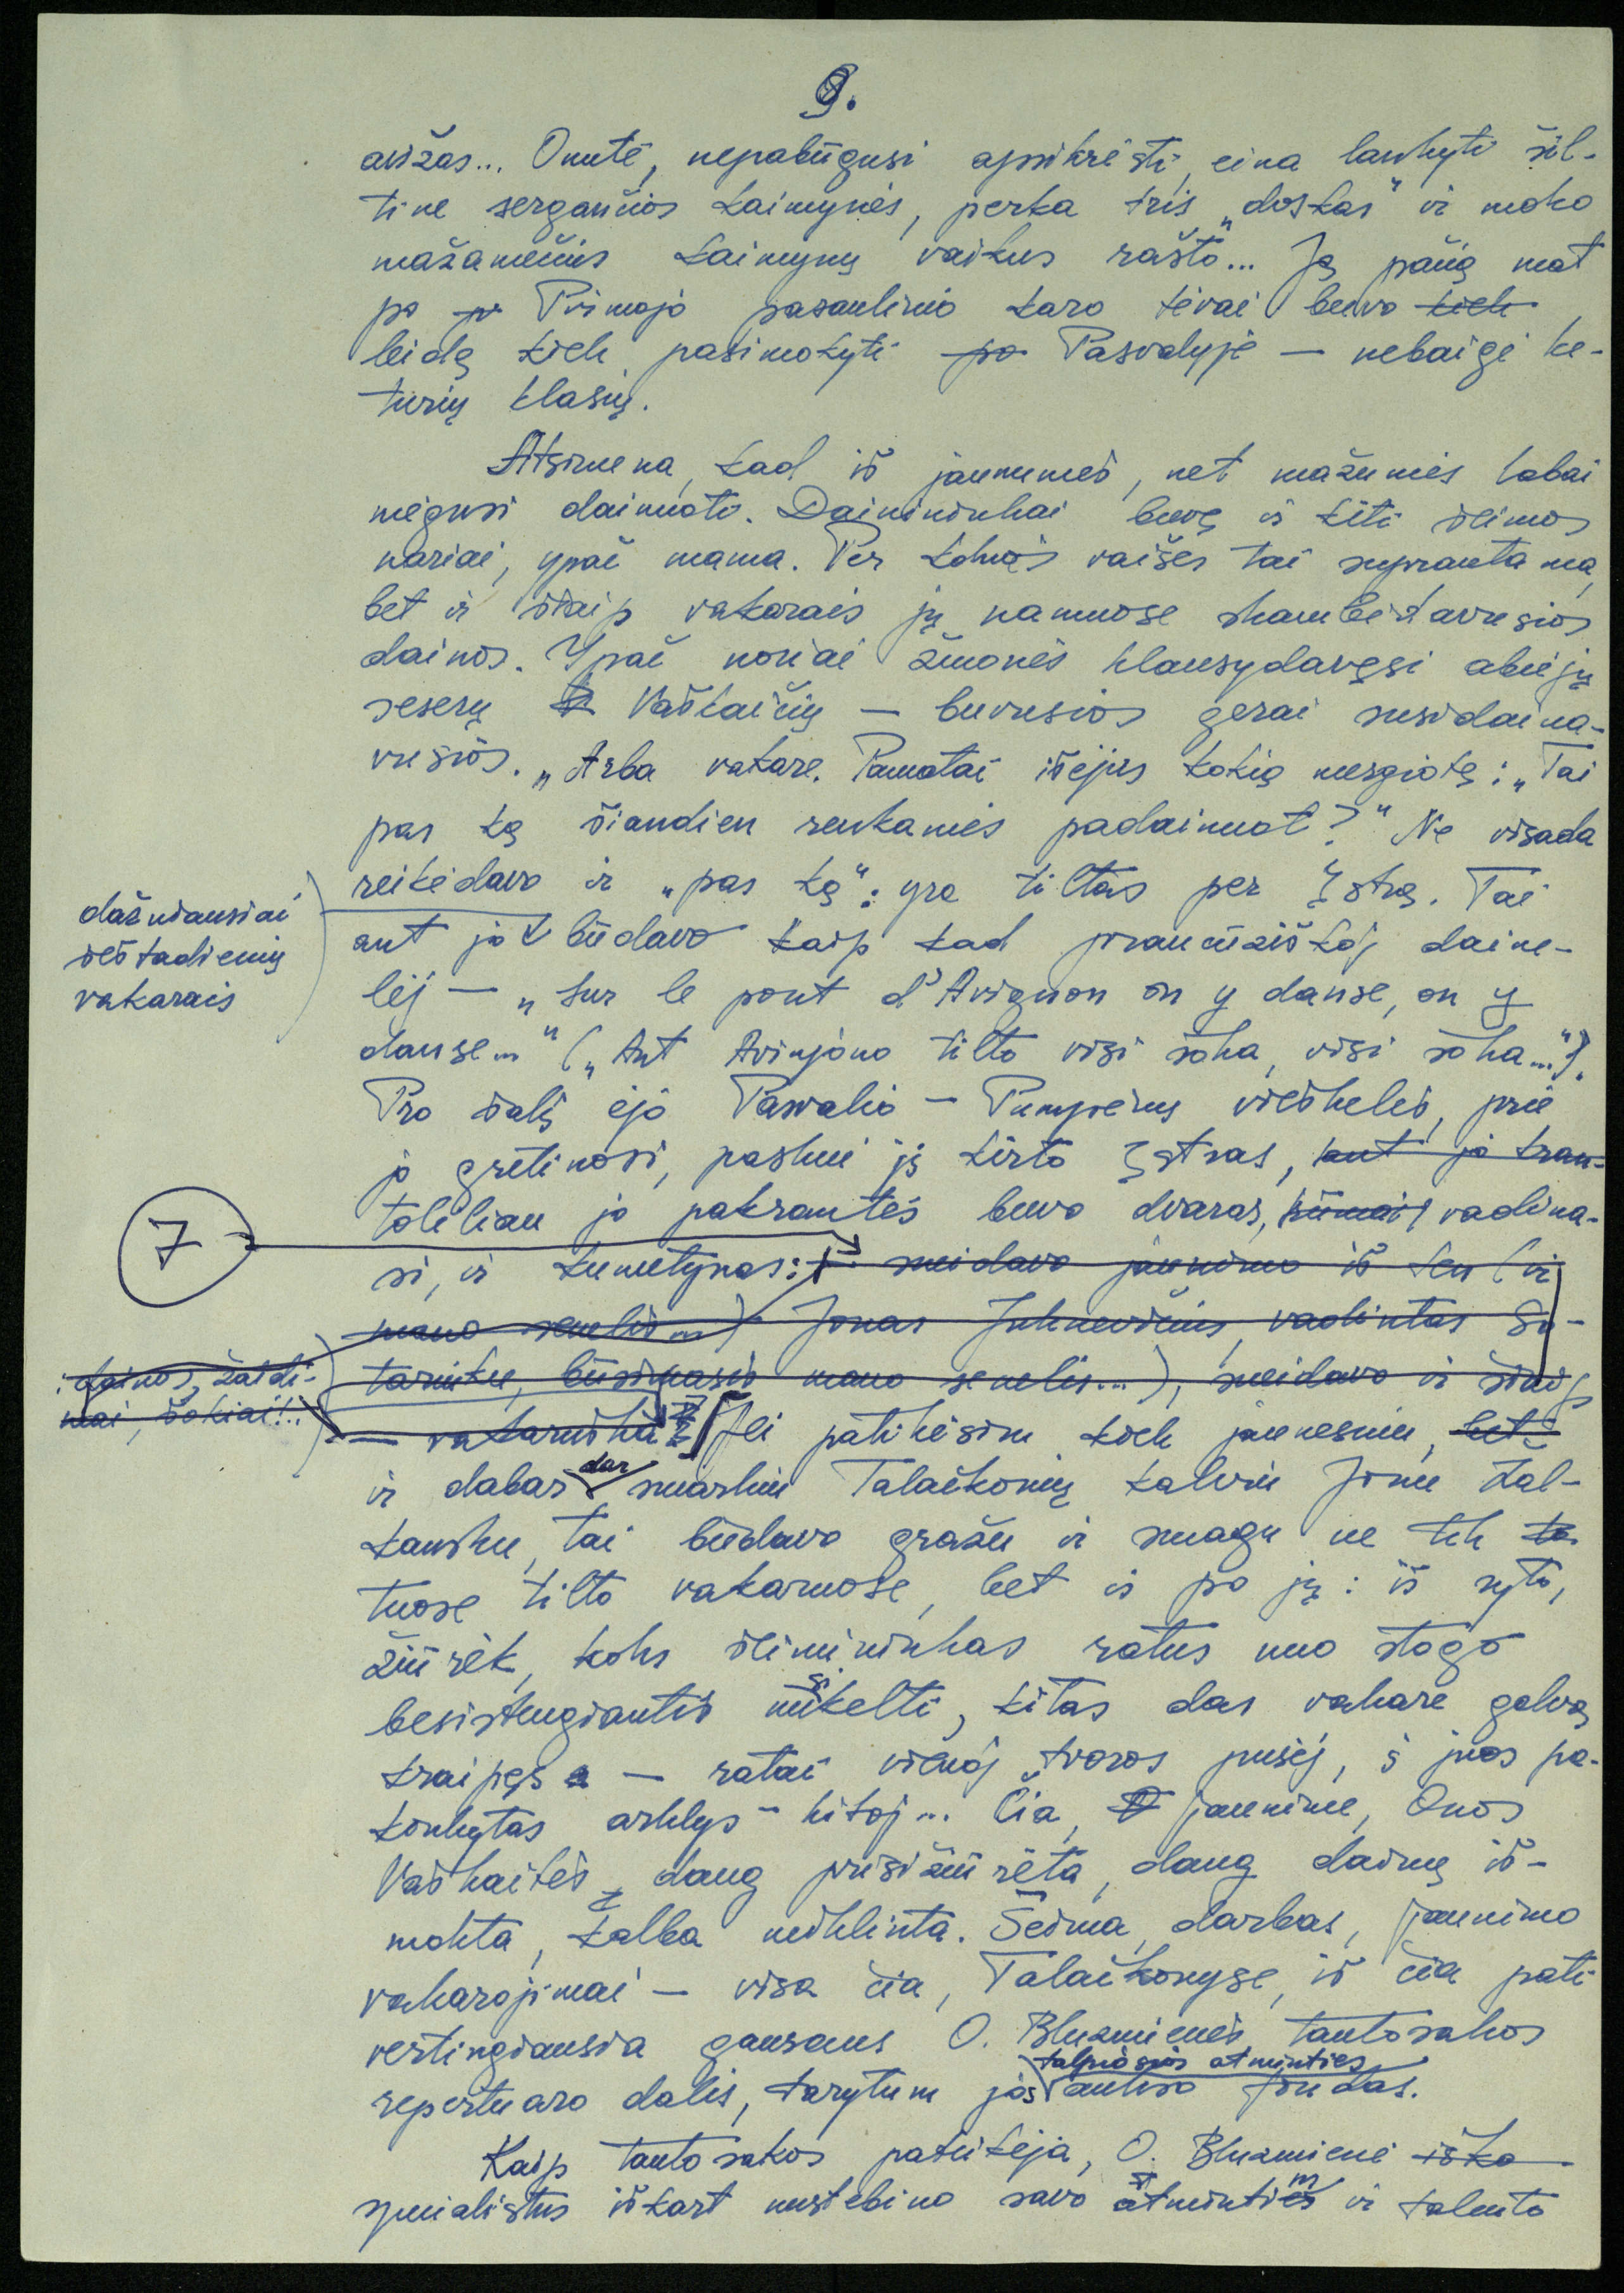 9.
avižas... Onutė, nepabūgusi apsikrėsti, eina lankyti šil-
tine sergančios kaimynės, perka tris „doskas" ir moko
mažamečius kaimynų vaikus rašto... Ją pačią mat
po p Pirmojo pasaulinio karo tėvai buvo tiek
leidę tiek pasimokyti po Pasvalyje — nebaigė ke-
turių klasių.
Atsimena, kad iš jaunumės, net mažumės labai
mėgusi dainuoti. Dainininkai buvę ir kiti šeimos
nariai, ypač mama. Per kokias vaišes tai suprantama,
bet ir šiaip vakarais jų namuose skambėdavusios
dainos. Ypač noriai žmonės klausydavęsi abiejų
seserų Vaškaičių — buvusios gerai susidaina-
vusios. „Arba vakare. Pamatai išėjus kokią mergiotę: „Tai
pas ką šiandien renkamės padainuot?" Ne visada
reikėdavo ir „pas ką": yra tiltas per Įstrą. Tai
dažniausiai
šeštadienių
vakarais
ant jo būdavo kaip kad prancūziškoj daine-
lėj — „Sur le pont d'Avignon on y danse, on y
danse..." („Ant Avinjono tilto visi šoka, visi šoka...").
Pro šalį ėjo Pasvalio – Pumpėnų vieškelis, prie
jo gretinosi, paskui jį kirto Įstras, ant jo kran-
tolėliau jo pakrantės buvo dvaras, rūmai, vadina-
7
si, ir kumetynas: sueidavo jaunimo iš ten (ir
mano senelis...) Jonas Juknevičius, vadintas Su-
: dainos, žaidi-
mai, šokiai!..
tarniku, būsimasis mano senelis...), sueidavo ir šiaip
— vakaruška. Jei patikėsim kiek jaunesniu, bet
ir dabar dar smarkiu Talačkonių kalviu Jonu Žal-
kausku, tai būdavo gražu ir smagu ne tik ta
tuose tilto vakaruose, bet ir po jų: iš ryto,
žiūrėk, koks šeimininkas ratus nuo stogo
besistengiantis nusikelti, kitas dar vakare galvą
kraipęs — ratai vienoj tvoros pusėj, į juos pa-
kinkytas arklys – kitoj... Čia, jaunime, Onos
Vaškaitės daug prisižiūrėta, daug dainų iš-
mokta, kalba nušlifinta. Šeima, darbas, jaunimo
vakarojimai — visa čia, Talačkonyse, iš čia pati
vertingiausia gausaus O. Bluzmienės tautosakos
repertuaro dalis, tarytum jos talpiosios atminties aukso fondas.
Kaip tautosakos pateikėja, O. Bluzmienė iško
specialistus iškart nustebino savo atmintim ir talento